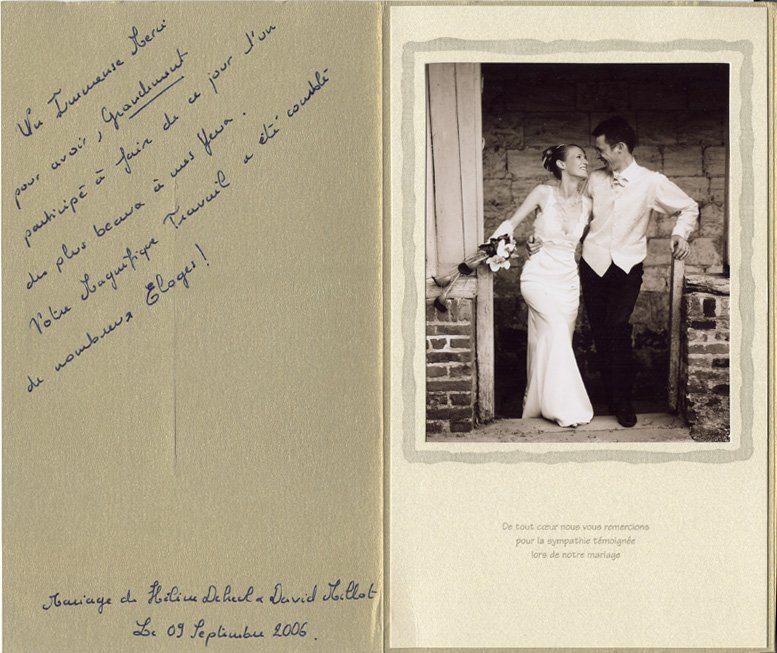 Un Immense Merci
pour avoir, Grandement
participé à faire de ce jour l'un
des plus beaux à mes yeux.
Votre Magnifique Travail a été comblé
de nombreux Eloges!
Mariage de Hélène & David Millot
Le 09 Septembre 2006.
De tout cœur nous vous remercions
pour la sympathie témoignée
lors de notre mariage